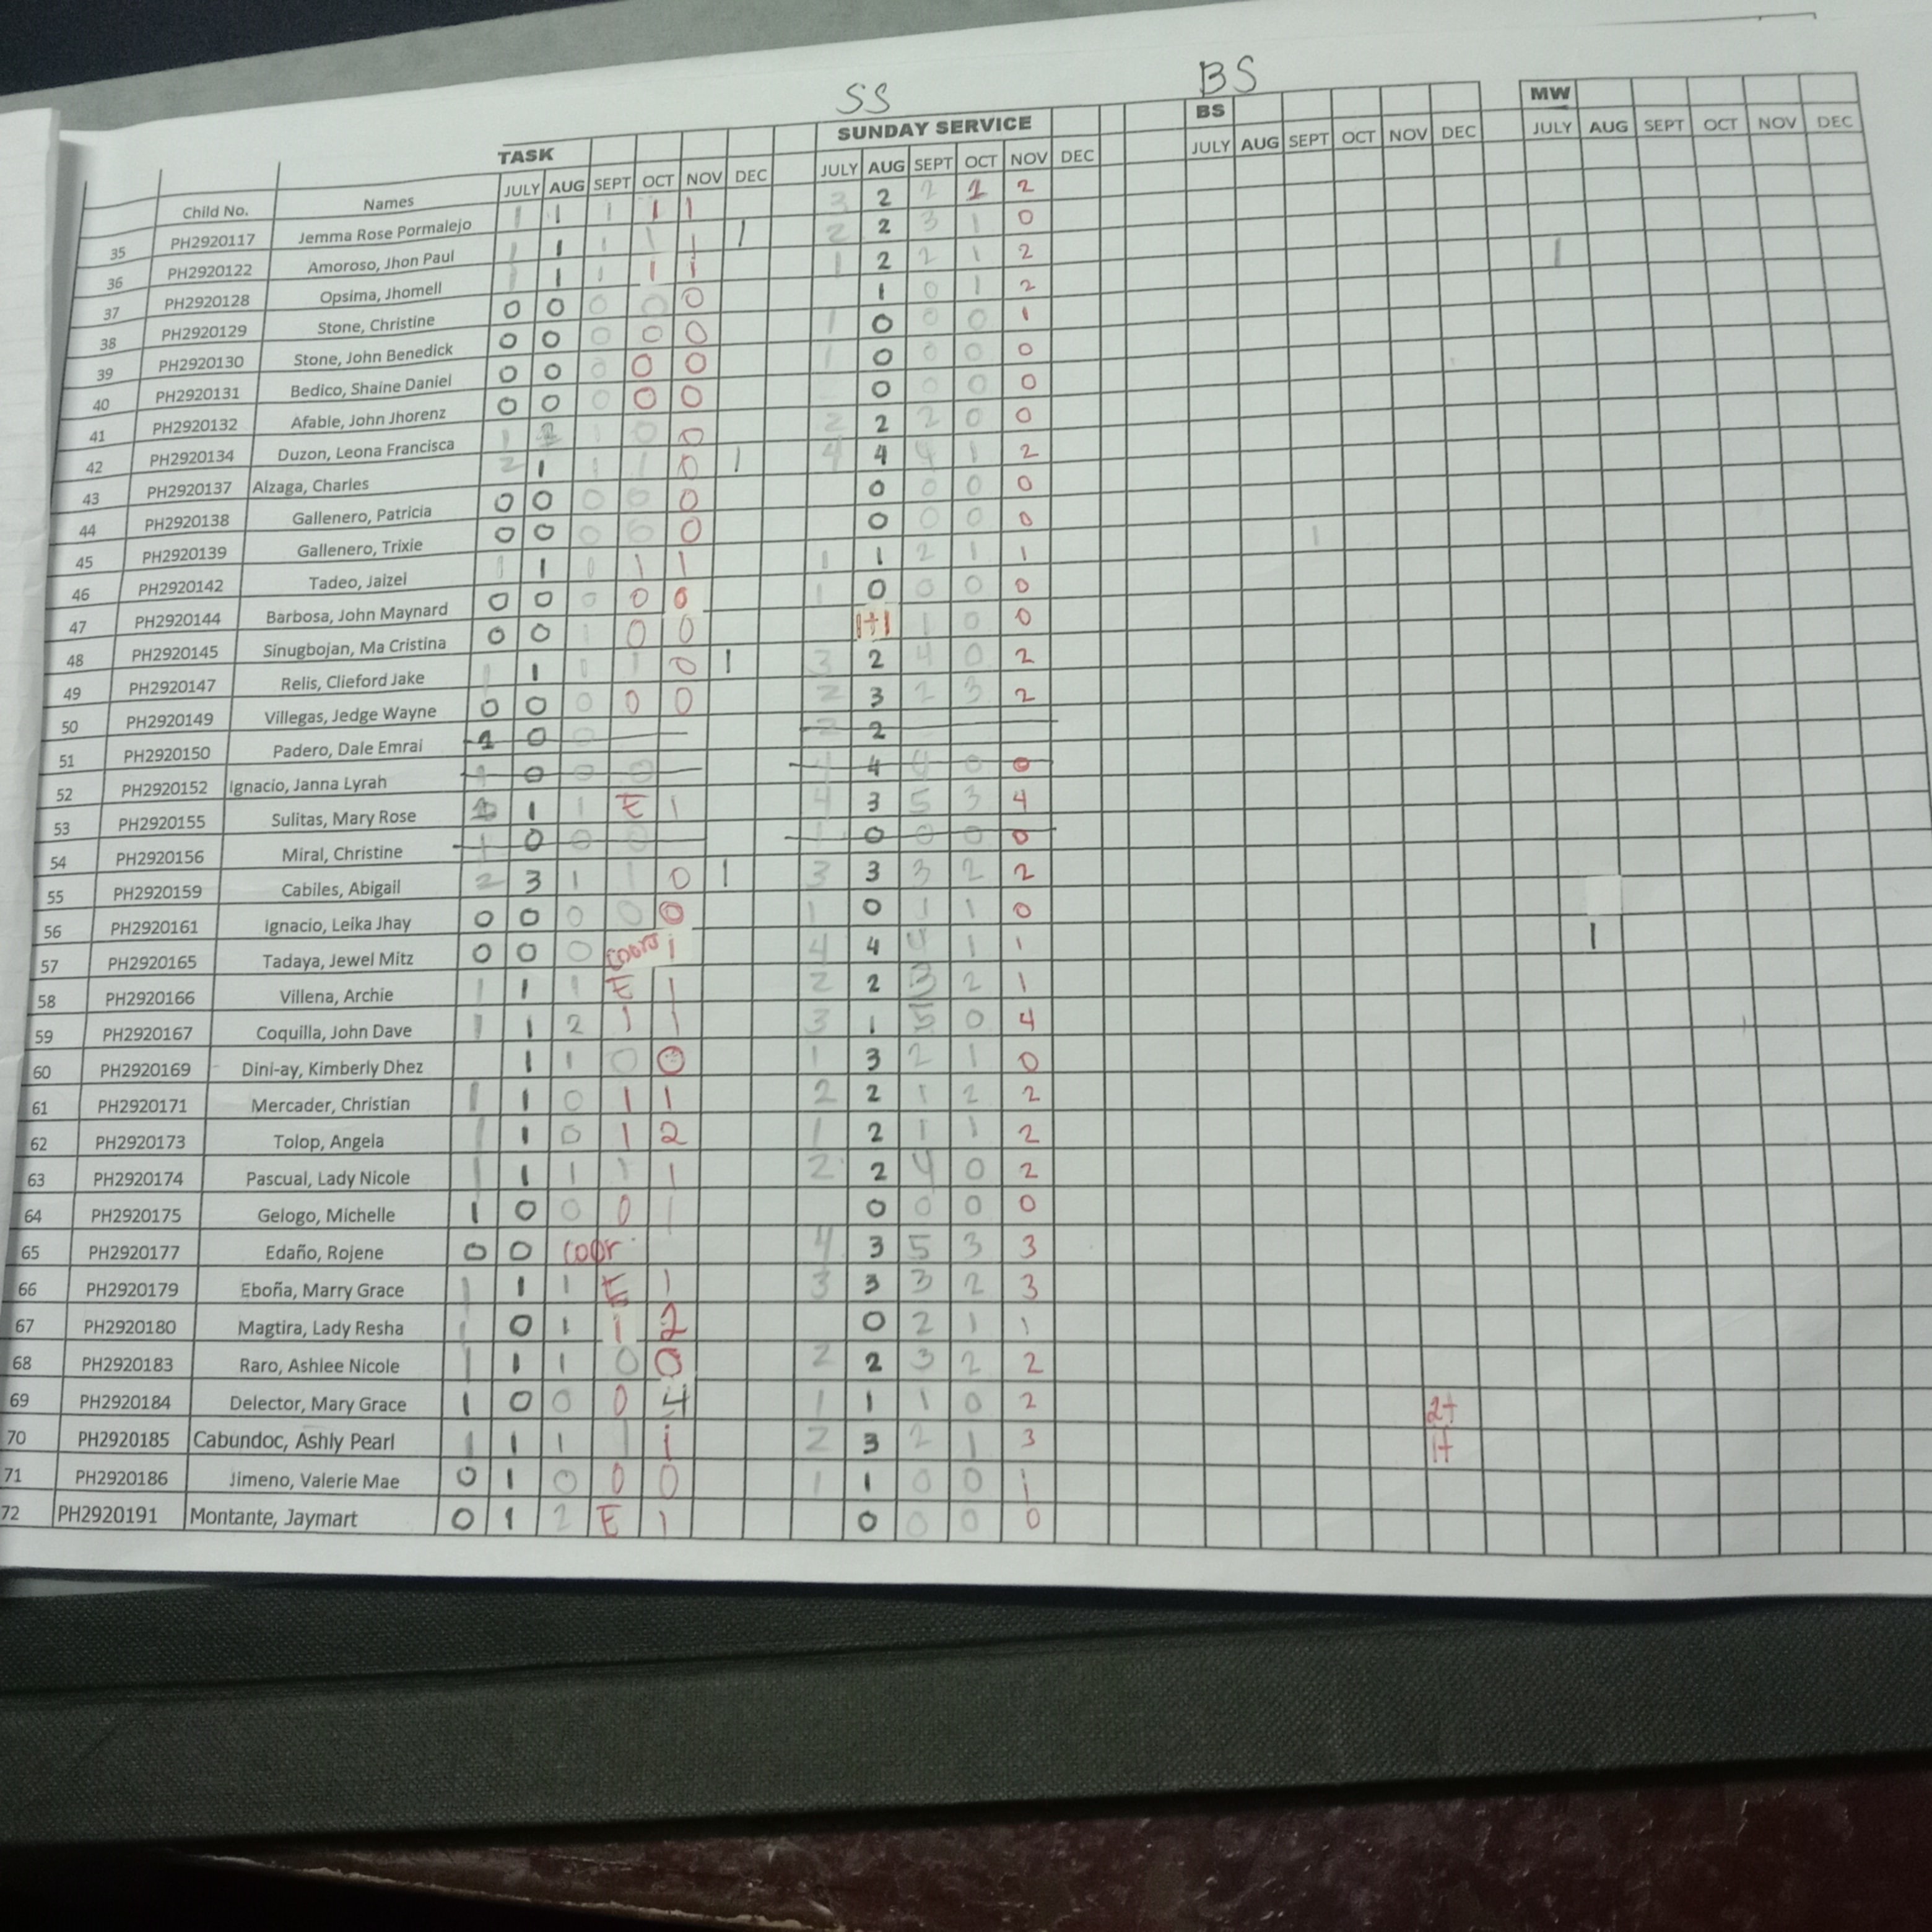 SS BS
TASK SUNDAY SERVICE BS MW
Child No. Names JULY AUG SEPT OCT NOV DEC JULY AUG SEPT OCT NOV DEC JULY AUG SEPT OCT NOV DEC JULY AUG SEPT OCT NOV DEC
35 PH2920117 Jemma Rose Pormalejo 1 1 1 1 1 3 2 2 1 2
36 PH2920122 Amoroso, Jhon Paul 1 1 1 1 1 1 2 2 3 1 0
37 PH2920128 Opsima, Jhomell 1 1 1 1 1 1 2 2 1 2 1
38 PH2920129 Stone, Christine 0 0 0 0 0 1 0 1 2
39 PH2920130 Stone, John Benedick 0 0 0 0 0 1 0 0 0 1
40 PH2920131 Bedico, Shaine Daniel 0 0 0 0 0 1 0 0 0 0
41 PH2920132 Afable, John Jhorenz 0 0 0 0 0 0 0 0 0
42 PH2920134 Duzon, Leona Francisca 1 1 0 0 2 2 2 0 0
43 PH2920137 Alzaga, Charles 2 1 1 1 0 1 4 4 4 1 2
44 PH2920138 Gallenero, Patricia 0 0 0 0 0 0 0 0 0
45 PH2920139 Gallenero, Trixie 0 0 0 0 0 0 0 0 0
46 PH2920142 Tadeo, Jaizel 1 1 1 1 1 1 2 1 1 1
47 PH2920144 Barbosa, John Maynard 0 0 0 0 0 1 0 0 0 0
48 PH2920145 Sinugbojan, Ma Cristina 0 0 1 0 0 1+1 1 0 0
49 PH2920147 Relis, Clieford Jake 1 1 1 1 0 1 3 2 4 0 2
50 PH2920149 Villegas, Jedge Wayne 0 0 0 0 0 2 3 2 3 2
51 PH2920150 Padero, Dale Emrai 1 0 0 2 2
52 PH2920152 Ignacio, Janna Lyrah 1 0 0 0 4 4 4 0 0
53 PH2920155 Sulitas, Mary Rose 1 1 E 1 4 3 5 3 4
54 PH2920156 Miral, Christine 1 0 0 0 1 0 0 0 0
55 PH2920159 Cabiles, Abigail 2 3 1 1 0 1 3 3 3 2 2
56 PH2920161 Ignacio, Leika Jhay 0 0 0 0 0 1 0 1 1 0
57 PH2920165 Tadaya, Jewel Mitz 0 0 0 coor 1 4 4 4 1 1 1
58 PH2920166 Villena, Archie 1 1 1 E 1 2 2 3 2 1
59 PH2920167 Coquilla, John Dave 1 1 2 1 1 3 1 5 0 4
60 PH2920169 Dini-ay, Kimberly Dhez 1 1 0 0 1 3 2 1 0
61 PH2920171 Mercader, Christian 1 1 0 1 1 2 2 1 2 2
62 PH2920173 Tolop, Angela 1 1 0 1 2 1 2 1 1 2
63 PH2920174 Pascual, Lady Nicole 1 1 1 1 1 2 2 4 0 2
64 PH2920175 Gelogo, Michelle 1 0 0 0 1 0 0 0 0
65 PH2920177 Edaño, Rojene 0 0 coor 4 3 5 3 3
66 PH2920179 Eboña, Marry Grace 1 1 1 E 1 3 3 3 2 3
67 PH2920180 Magtira, Lady Resha 1 0 1 1 2 0 2 1 1
68 PH2920183 Raro, Ashlee Nicole 1 1 1 0 0 2 2 3 2 2
69 PH2920184 Delector, Mary Grace 1 0 0 0 4 1 1 1 0 2 2+
70 PH2920185 Cabundoc, Ashly Pearl 1 1 1 1 1 2 3 2 1 3 1+
71 PH2920186 Jimeno, Valerie Mae 0 1 0 0 0 1 1 0 0 1
72 PH2920191 Montante, Jaymart 0 1 2 E 1 0 0 0 0